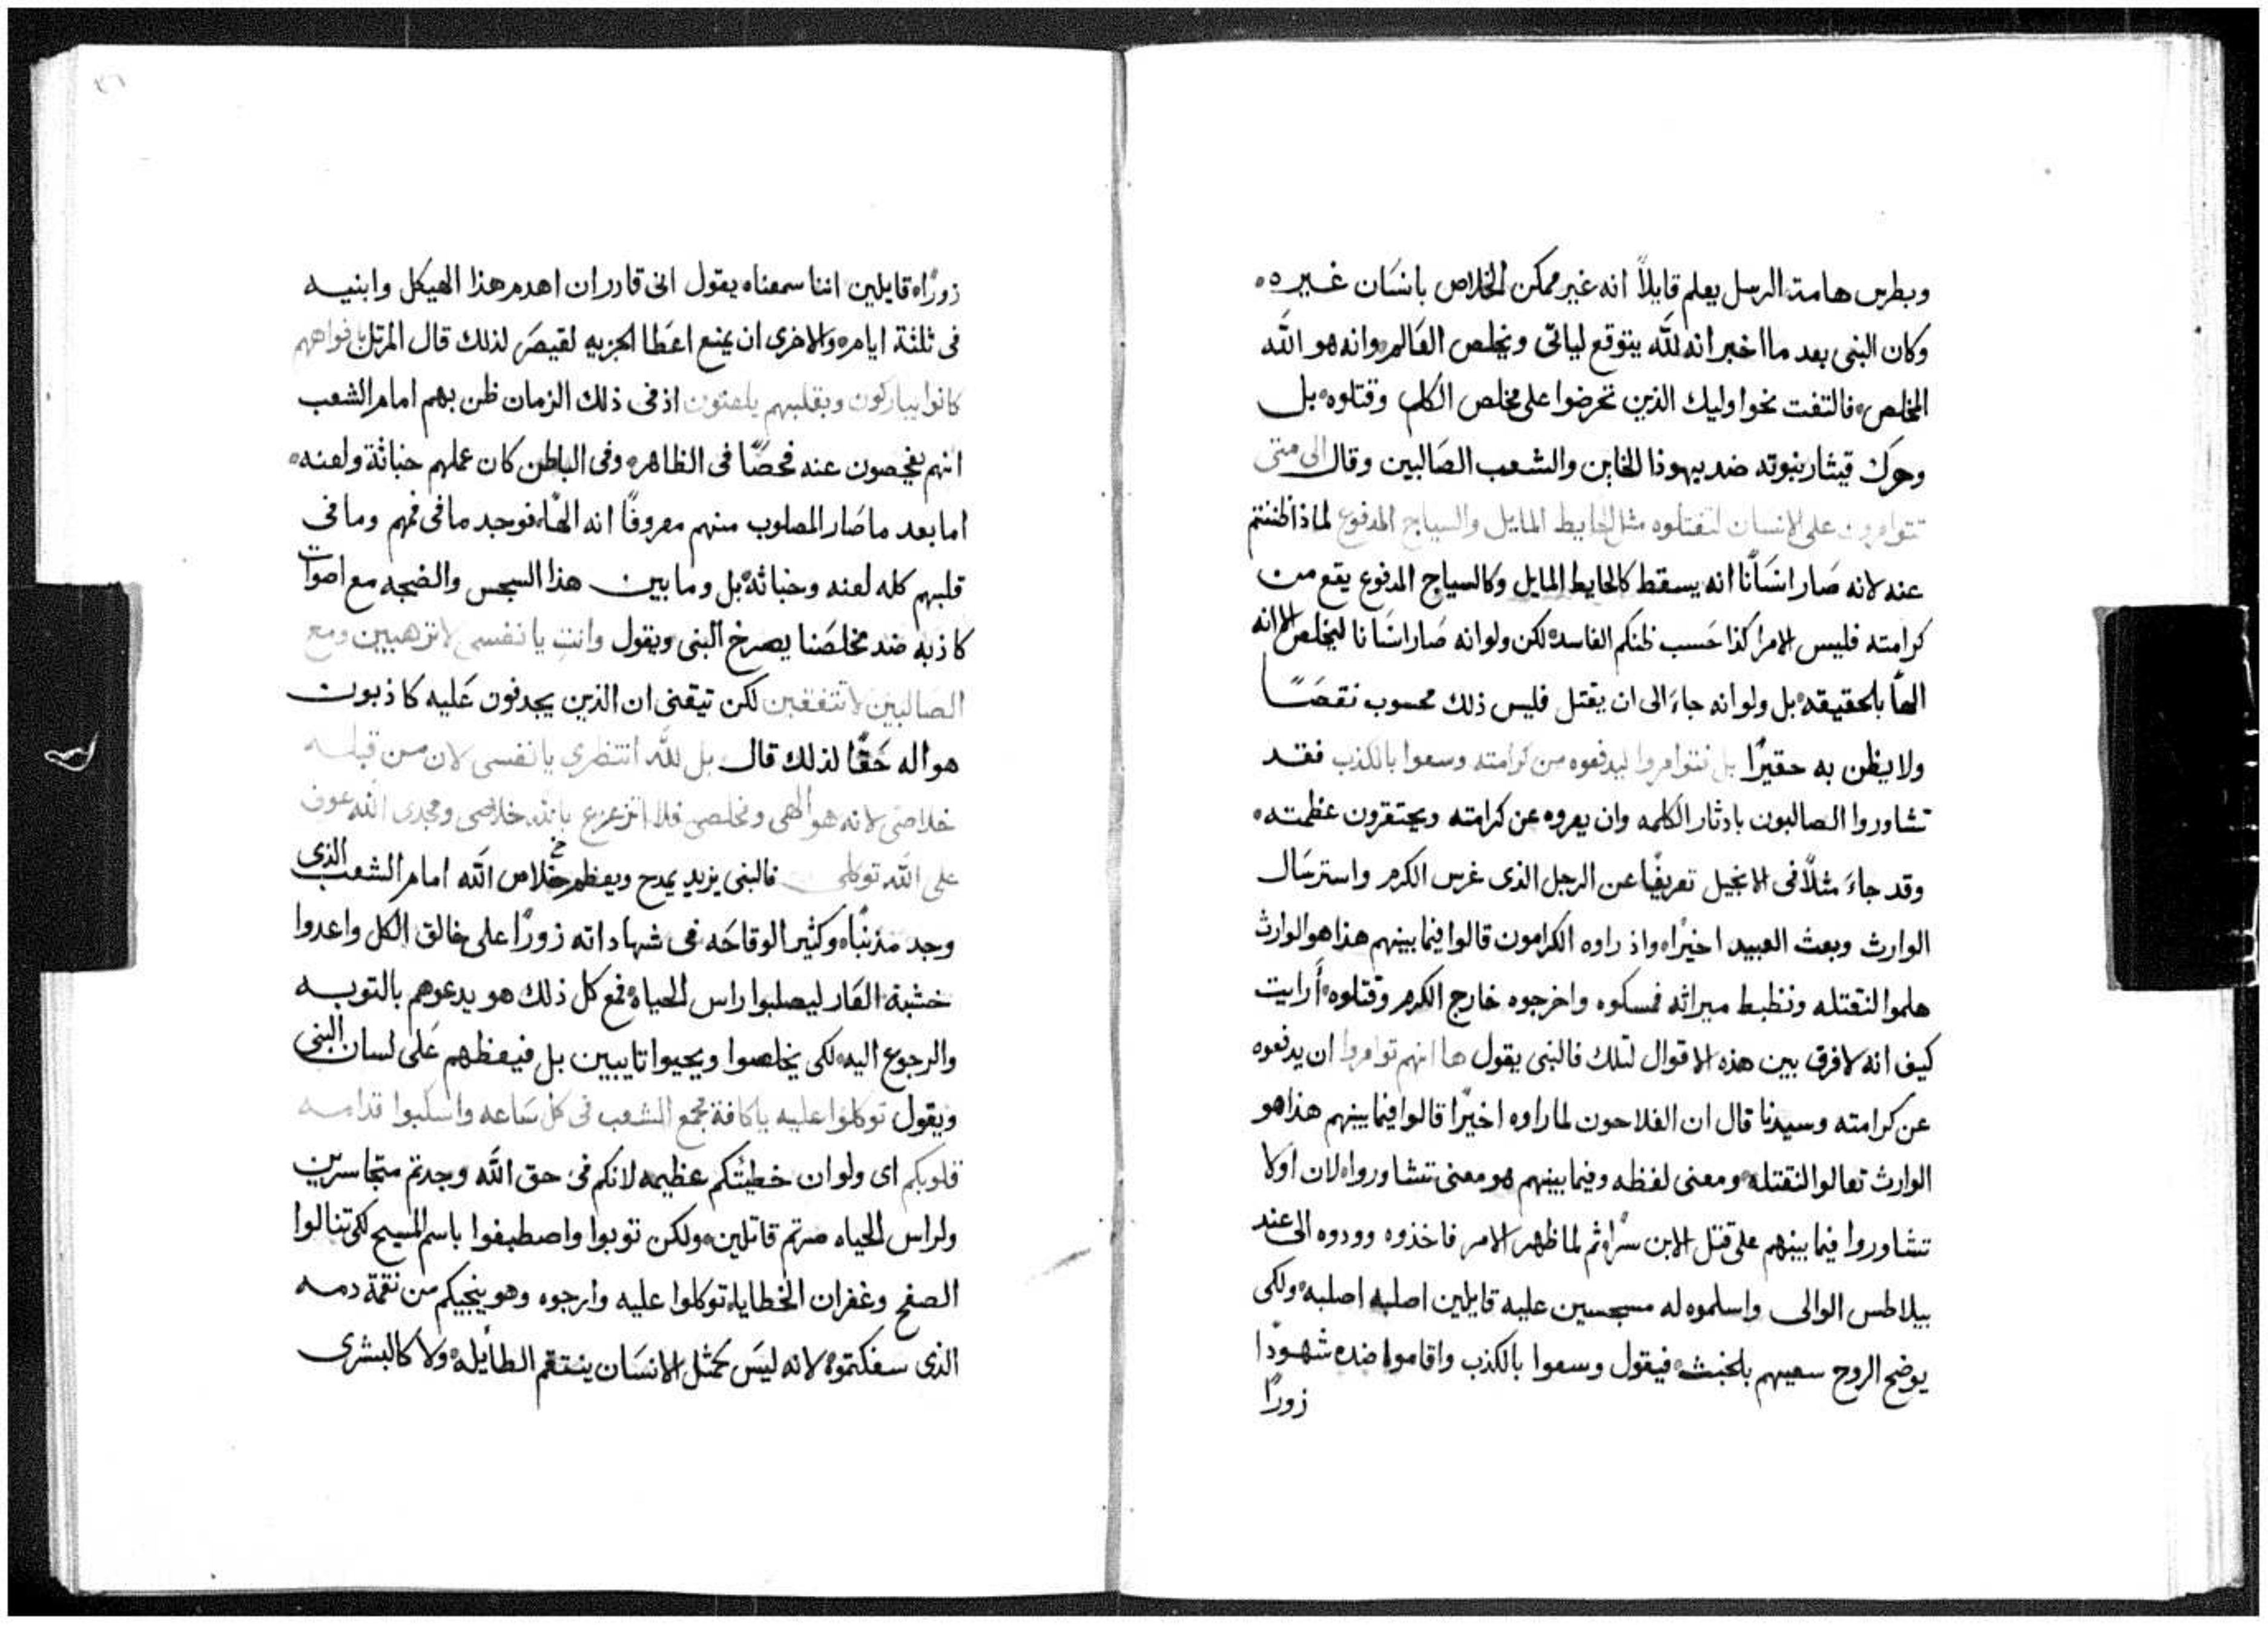 وبطرس هامة الرسل يعلم قايلاً انه غير ممكن الخلاص بانسان غيره ه
وكان النبي بعد ما اخبر انه لله يتوقع لياتى ويخلص العالم وانه هو الله
المخلص فالتفت نحو اوليك الذين تحرضوا على مخلص الكل وقتلوه بل
وحرك قيثار نبوته ضد يهوذا الخاين والشعب الصالبين وقال الى متى
تتوامرون على الانسان لتقتلوه مثل الحايط المايل والسياج المدفوع لماذا ظننتم
عنه لانه صار انسانًا انه يسقط كالحايط المايل وكالسياج المدفوع يقع من
كرامته فليس الامر كذا حسب ظنكم الفاسد لكن ولو انه صار انسانا ليخلص الا انه
الهًا بالحقيقه بل ولو انه جاء الى ان يقتل فليس ذلك محسوب نقصًا
ولا يظن به حقيرًا بل تتوامروا ليدفعوه من كرامته وسعوا بالكذب فقد
تشاوروا الصالبون بادثار الكلمه وان يعروه عن كرامته ويحتقرون عظمته ه
وقد جاء مثلاً فى الانجيل تعريفًا عن الرجل الذى غرس الكرم واسترسال
الوارث وبعث العبيد اخيرًا واذ راوه الكرامون قالوا فيما بينهم هذا هو الوارث
هلموا لنقتله ونظبط ميراثه فمسكوه واخرجوه خارج الكرم وقتلوه أرايت
كيف انه لا فرق بين هذه الاقوال لتلك فالنبى يقول ها انهم توامروا ان يدفعوه
عن كرامته وسيدنا قال ان الفلاحون لما راوه اخيرًا قالوا فيما بينهم هذا هو
الوارث تعالوا لنقتله ومعنى لفظه وفيما بينهم هو معنى تشاوروا لان اولا
تشاوروا فيما بينهم على قتل الابن سرًا ثم لما ظهر الامر فاخذوه وودوه الى عند
بيلاطس الوالى واسلموه له مسجسين عليه قايلين اصلبه اصلبه ولكى
يوضح الروح سعيهم بلخبث فيقول وسعوا بالكذب واقاموا ضده شهودًا
زورًا
زورًا قايلين اننا سمعناه يقول انى قادر ان اهدم هذا الهيكل وابنيه
فى ثلثة ايام والاخرى ان يمنع اعطا الجزيه لقيصر لذلك قال المرتل بافواههم
كانوا يباركون وبقلبهم يلعنون اذ فى ذلك الزمان ظن بهم امام الشعب
انهم يفحصون عنه فحصًا فى الظاهر وفى الباطن كان عملهم خباثة ولعنه ه
اما بعد ما صار المصلوب منهم معروفًا انه الهًا فوجد ما فى فمهم وما فى
قلبهم كله لعنه وخباثه بل وما بين هذا السجس والضجه مع اصوات
كاذبه ضد مخلصنا يصرخ النبى ويقول وانتِ يا نفسى لا تزهبين ومع
الصالبين لا تتفقين لكن تيقنى ان الذين يجدفون عليه كاذبون
هو اله حقًا لذلك قال بل لله انتظرى يا نفسى لان من قبله
خلاصى لانه هو الهى ومخلصى فلا اتزعزع بالله خلاصى ومجدى الله عونى
على الله توكلى فالنبى يزيد يمدح ويعظم خلاص الله امام الشعب الذى
وجد مذنبًا وكثير الوقاحه فى شهاداته زورًا على خالق الكل واعدوا
خشبة العار ليصلبوا راس الحياه فمع كل ذلك هو يدعوهم بالتوبه
والرجوع اليه لكى يخلصوا ويحيوا تايبين بل فيعظهم على لسان النبى
ويقول توكلوا عليه يا كافة مجمع الشعب فى كل ساعه واسكبوا قدامه
قلوبكم اى ولو ان خطيتكم عظيمه لانكم فى حق الله وجدتم متجاسرين
ولراس الحياه صرتم قاتلين ولكن توبوا واصطبغوا باسم المسيح لكى تنالوا
الصفح وغفران الخطايا توكلوا عليه وارجوه وهو ينجيكم من نقمة دمه
الذى سفكتموه لانه ليس كمثل الانسان ينتقم الطايله ولا كالبشرى